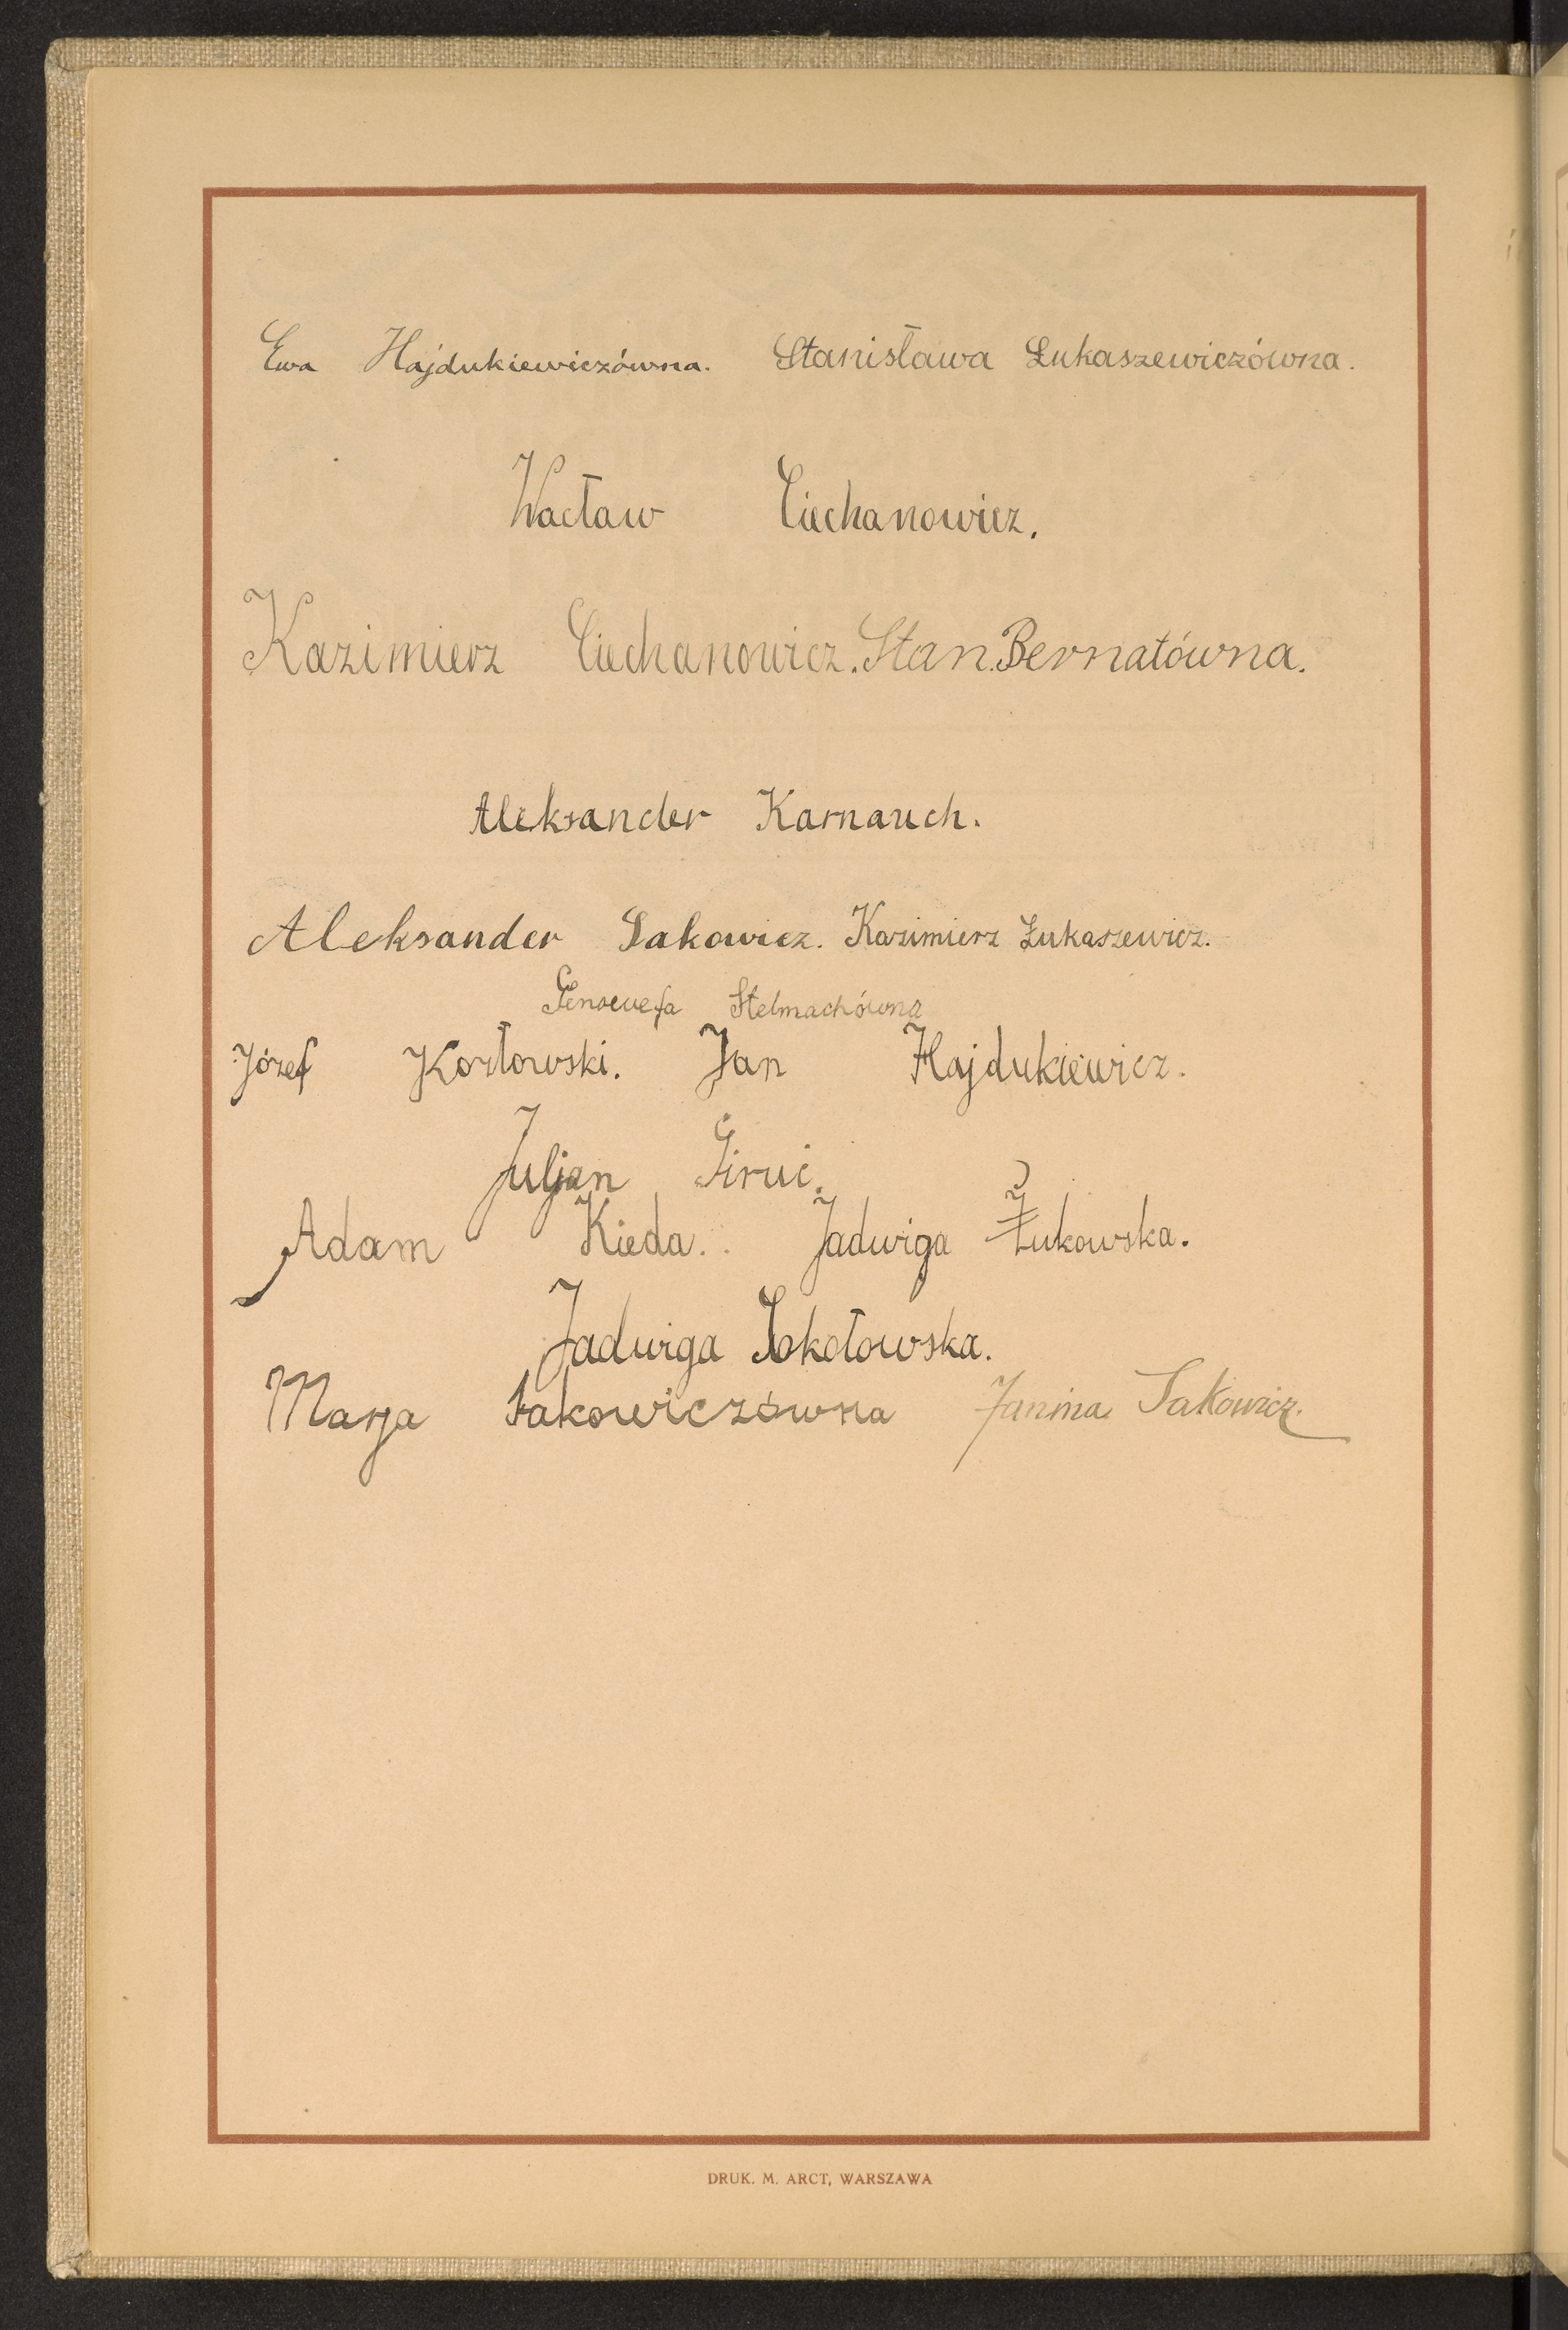 Ewa Hajdukiewiczówna. Stanisława Łukaszewiczówna.
Wacław Ciechanowicz.
Kazimierz Ciechanowicz. Stan. Bernatówna.
Aleksander Karnauch.
Aleksander Sakowicz. Kazimierz Łukaszewicz.
Genowefa Stelmachówna
Józef Kozłowski. Jan Hajdukiewicz.
Juljan Giruć.
Adam Kieda. Jadwiga Żukowska.
Jadwiga Sokołowska.
Marja Sakowiczówna Janina Sakowicz.
DRUK. M. ARCT, WARSZAWA